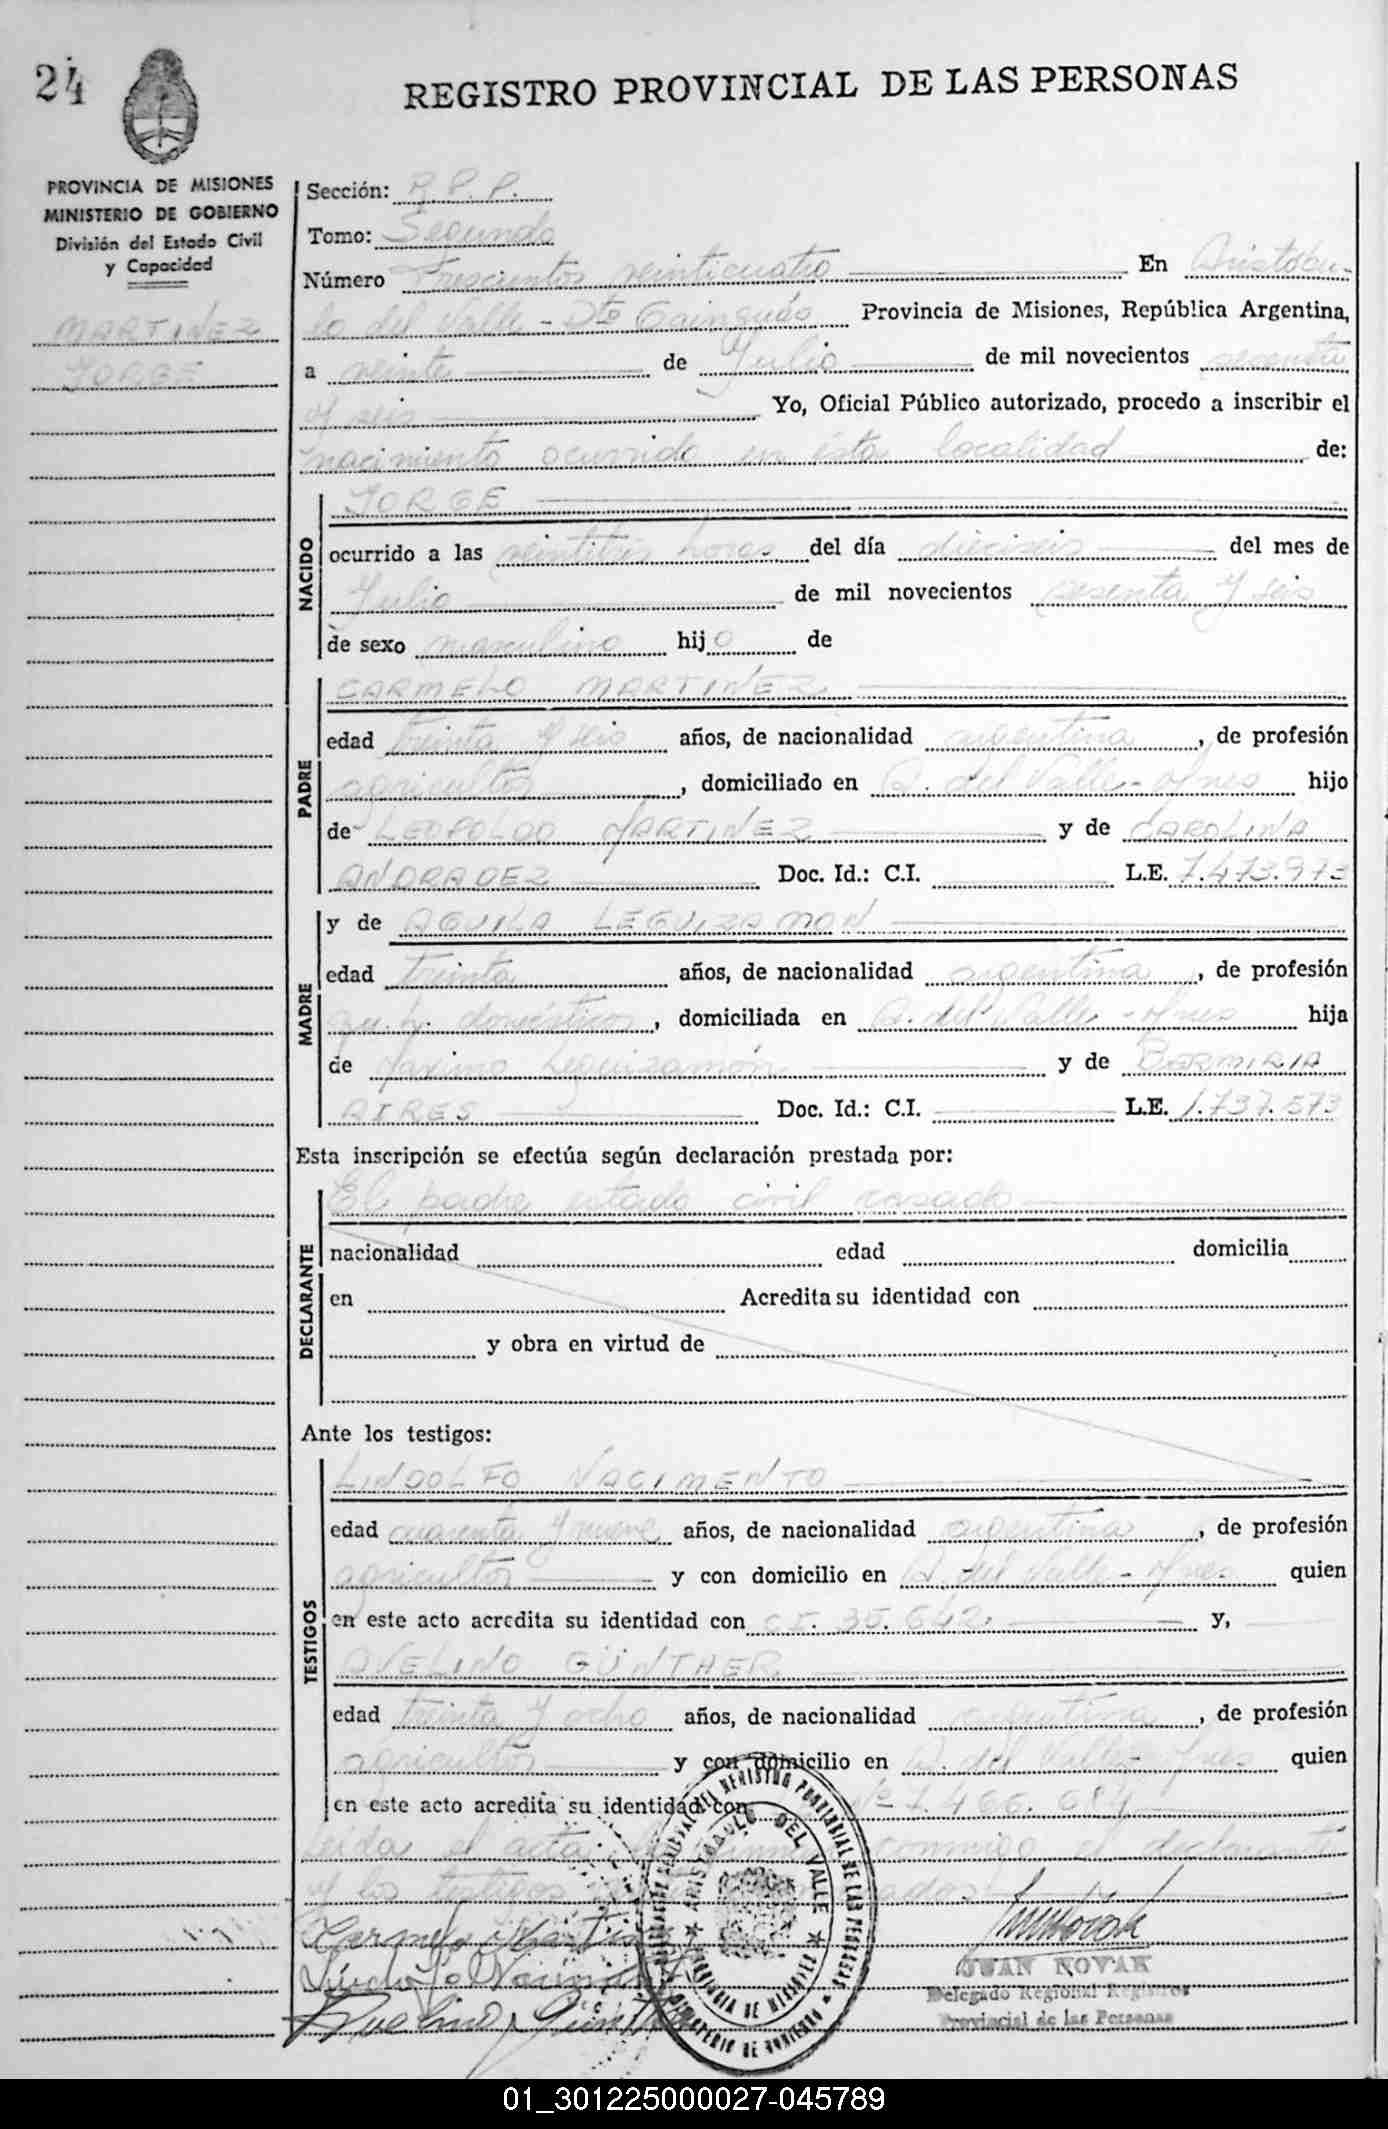 24
REGISTRO PROVINCIAL DE LAS PERSONAS
PROVINCIA DE MISIONES
MINISTERIO DE GOBIERNO
División del Estado Civil
y Capacidad
MARTINEZ
JORGE
Sección: R.P.P.
Tomo: Segundo
Número Trescientos veinticuatro En Aristóbu-
lo del Valle - Dto Cainguás Provincia de Misiones, República Argentina,
a veinte de Julio de mil novecientos sesenta
y seis Yo, Oficial Público autorizado, procedo a inscribir el
nacimiento ocurrido en ésta localidad de:
NACIDO
JORGE
ocurrido a las veintitrés horas del día dieciseis del mes de
Julio de mil novecientos sesenta y seis
de sexo masculino hijo de
PADRE
CARMELO MARTINEZ
edad treinta y seis años, de nacionalidad argentina, de profesión
agricultor, domiciliado en A. del Valle - Mnes hijo
de LEOPOLDO MARTINEZ y de CAROLINA
ANDRADEZ Doc. Id.: C.I. L.E. 7.473.973
MADRE
y de AGUILA LEGUIZAMON
edad treinta años, de nacionalidad argentina, de profesión
qu. h. domésticos, domiciliada en A. del Valle - Mnes hija
de Maximo Leguizamón y de BERMIRIA
AIRES Doc. Id.: C.I. L.E. 1.737.573
Esta inscripción se efectúa según declaración prestada por:
DECLARANTE
El padre estado civil casado
nacionalidad edad domicilia
en Acredita su identidad con
y obra en virtud de
Ante los testigos:
TESTIGOS
LINDOLFO NACIMENTO
edad cuarenta y nueve años, de nacionalidad argentina, de profesión
agricultor y con domicilio en A. del Valle - Mnes. quien
en este acto acredita su identidad con CI. 35.642. y,
AVELINO GÜNTHER
edad treinta y ocho años, de nacionalidad argentina, de profesión
agricultor y con domicilio en A. del Valle - Mnes quien
en este acto acredita su identidad con Nº 7.466.684
Leida el acta conmigo el declarante
y los testigos
Carmelo Martinez
Lindolfo Nacimento
Avelino Günther
ARISTOBULO DEL VALLE
PROVINCIA DE MISIONES
MINISTERIO DE GOBIERNO
JUAN NOVAK
Delegado Regional Registros
Provincial de las Personas
01_301225000027-045789